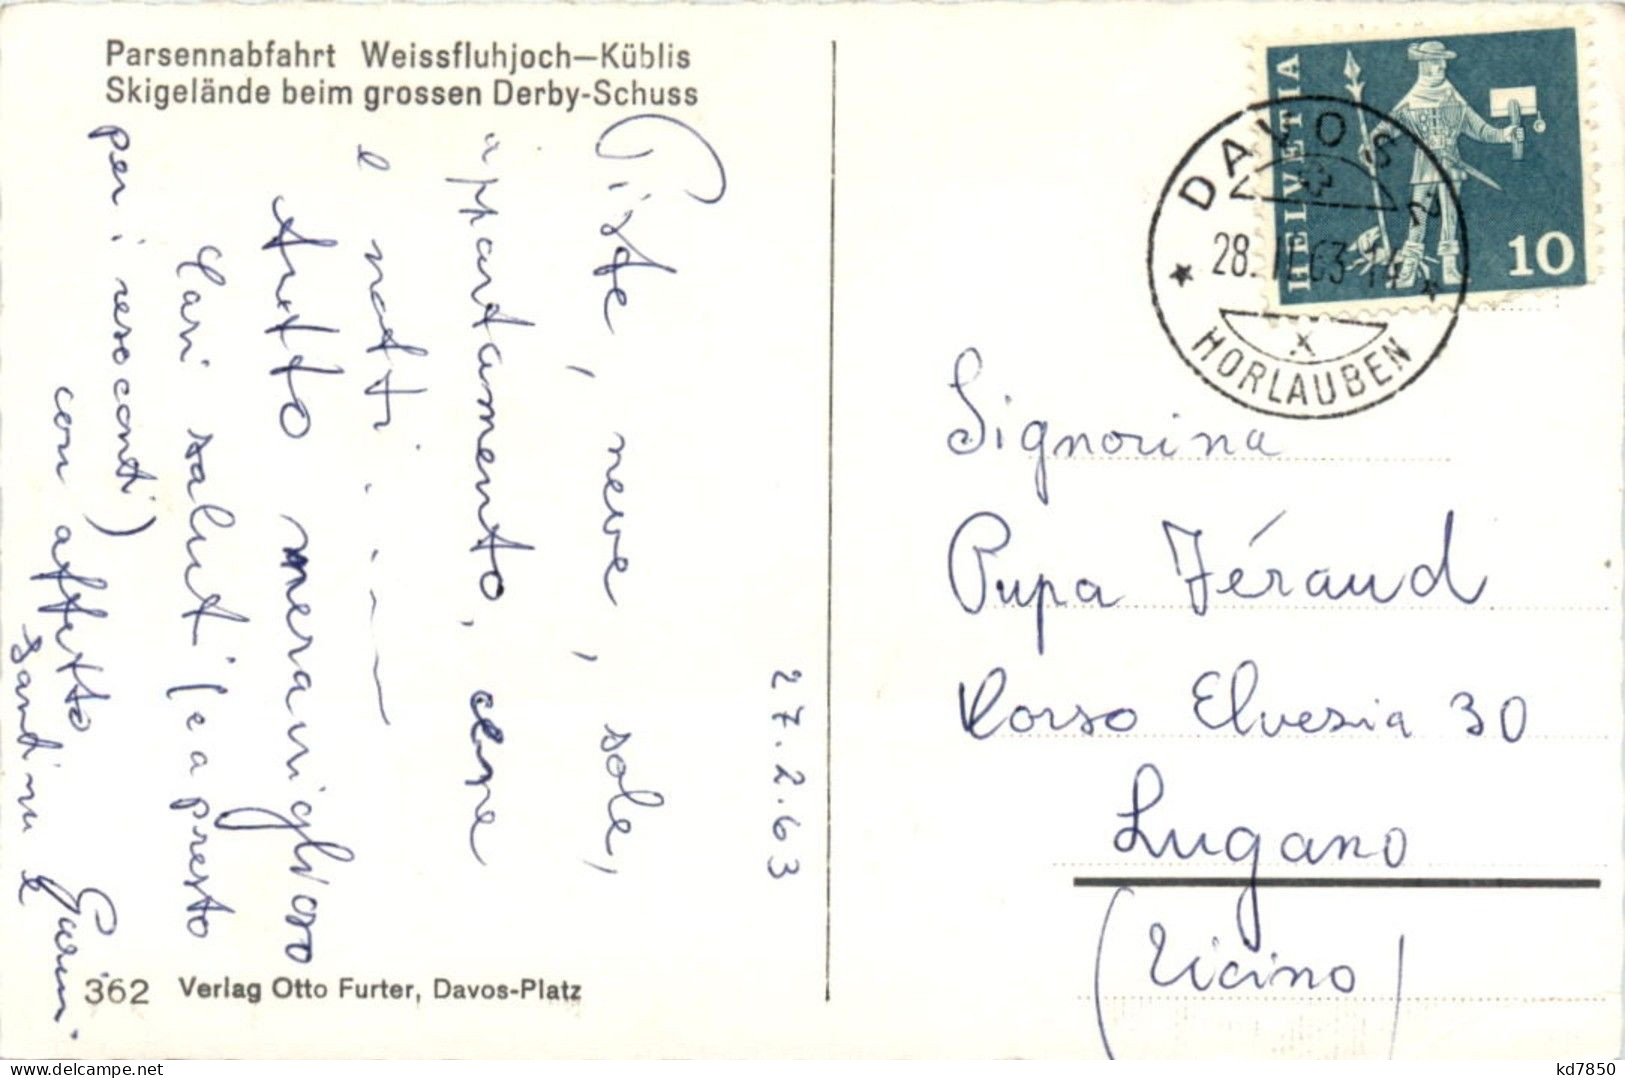 Parsennabfahrt Weissfluhjoch–Küblis
Skigelände beim grossen Derby-Schuss
27.2.63
Piste, neve, sole,
appartamento, cene
e notti . . . —
tutto meraviglioso
Cari saluti (e a presto
per i resoconti)
con affetto
Sandrin e Gerium.
362 Verlag Otto Furter, Davos-Platz
HELVETIA
10
DAVOS 2
28. II. 63. 14
HORLAUBEN
Signorina
Pupa Féraud
Corso Elvezia 30
Lugano
(Ticino)
kd7850